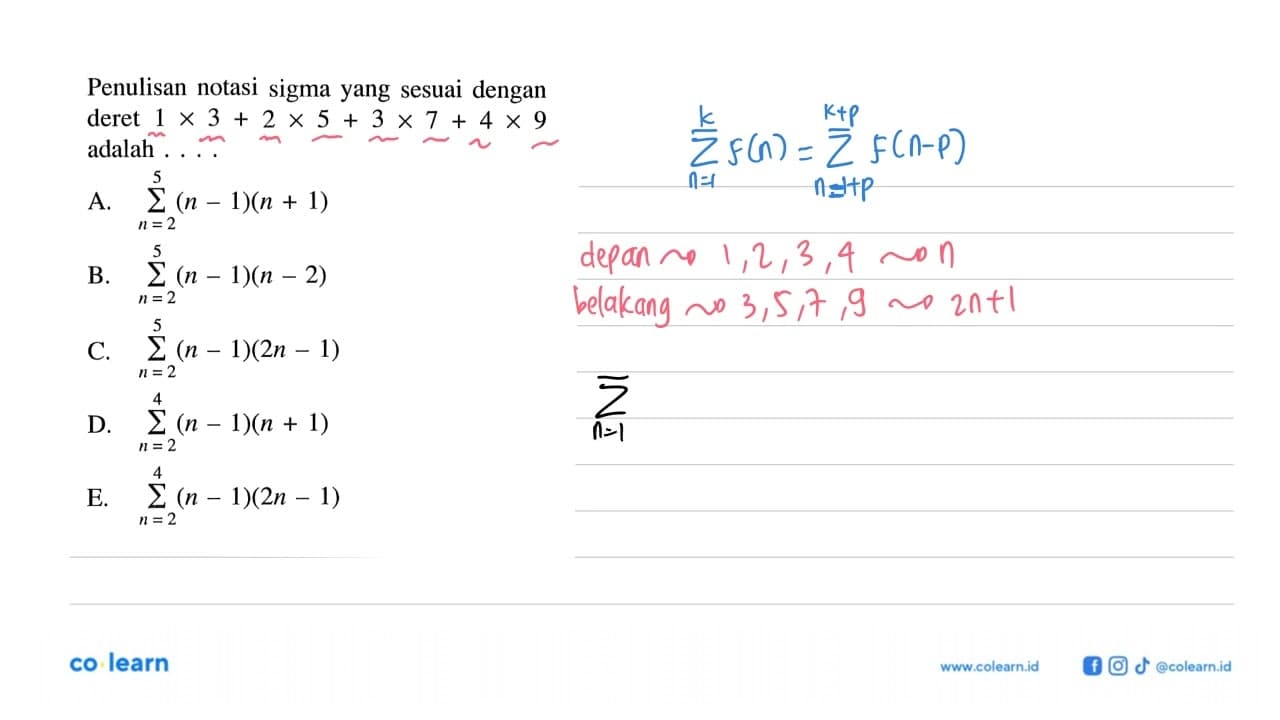 Penulisan notasi sigma yang sesuai dengan
deret 1 × 3 + 2 × 5 + 3 × 7 + 4 × 9
adalah . . . .
5
A. Σ (n – 1)(n + 1)
n = 2
5
B. Σ (n – 1)(n – 2)
n = 2
5
C. Σ (n – 1)(2n – 1)
n = 2
4
D. Σ (n – 1)(n + 1)
n = 2
4
E. Σ (n – 1)(2n – 1)
n = 2
k k+p
Σ f(n) = Σ f(n-p)
n=1 n=1+p
depan ~> 1,2,3,4 ~> n
belakang ~> 3,5,7,9 ~> 2n+1
Σ
n=1
co learn
www.colearn.id
@colearn.id